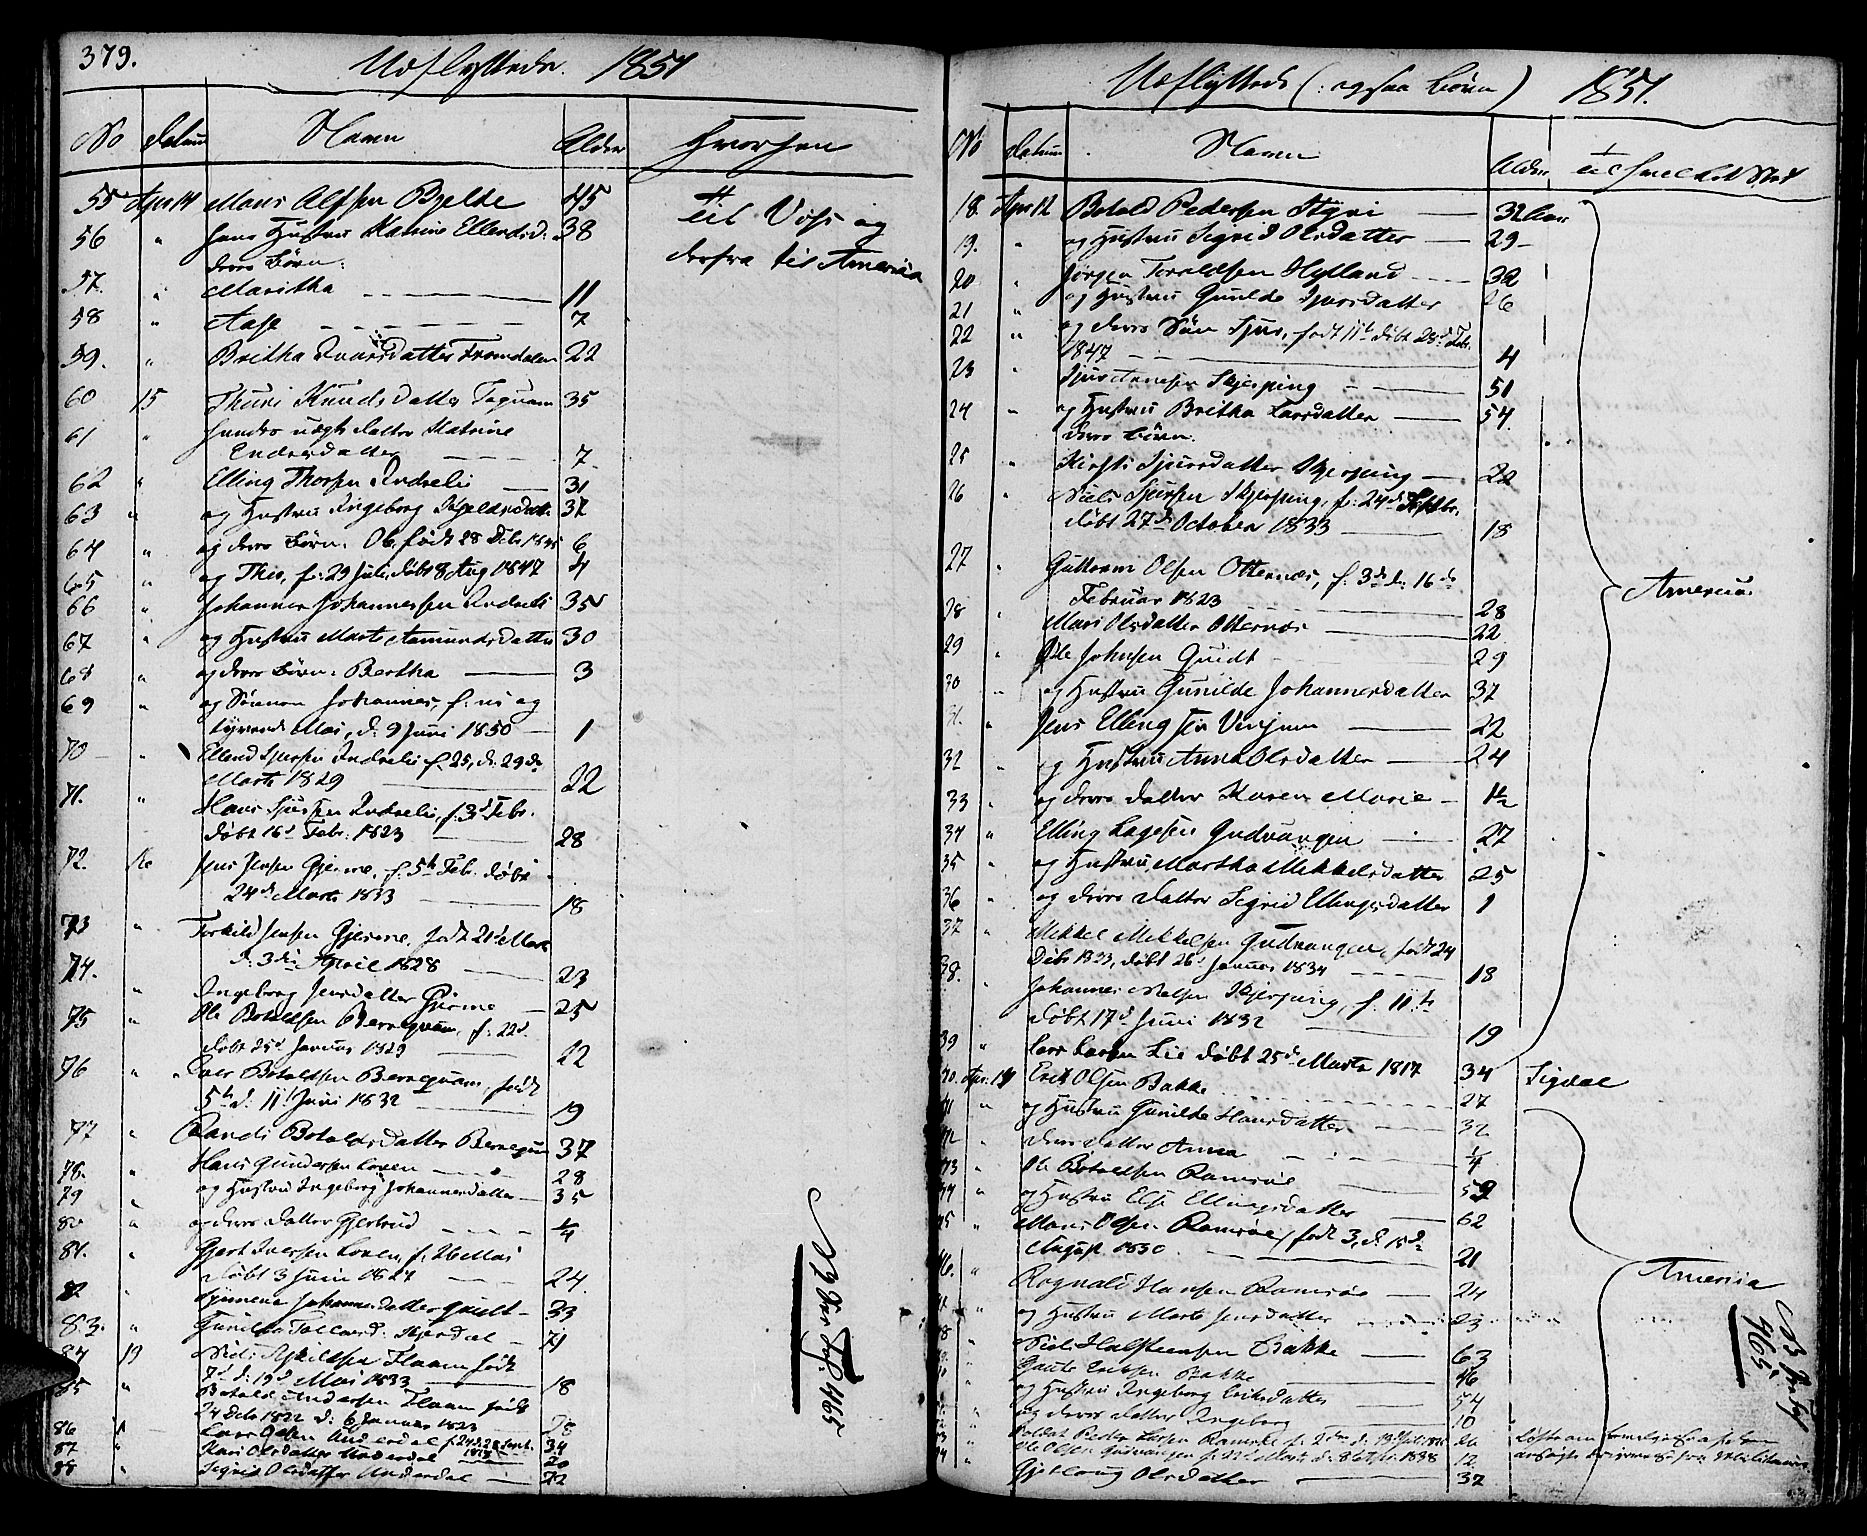 379.
Udflyttede. 1851
No Datum Navn Alder Hvorhen
55 Apr 14 Mons Alfsen Bjelde 45 til Voss og
56 " hans Hustru Katrine Ellendsd. 38 derfra til America
deres Børn:
57. " Maritha 11
58 " Aase 7
59. " Britha Iversdatter Fromdalen 22
60 15 Thuri Knudsdatter 35
61 " hendes uægte datter Katrine
Endresdatter 7
62 " Elling Thorsen Indreli 31
63 " og Hustru Ingeborg 37
64 " og deres Børn: Ole, født 28 Debr 1845 6
65 " og Thor, f. 29 Juli, døbt 8 Aug 1847 4
66 " Johannes Johannessen Indreli 35
67 " og Hustru Marte Aamundsdatter 30
68 " og deres Børn: Bertha 3
69 " og Sønnen Johannes, f. ni og
tyvende Mai, d. 9 Juni 1850 1
70 " Ellend Sjursen Indrelie f. 25, d. 29de
Marts 1829 22
71. " Hans Sjursen Indrelie, f. 3d Febr.
døbt 16d Febr. 1823 28
72. Jens Jensen Gjerme, f. 5te Feb. døbt
24de Marts 1833 18
73 " Torkild Jensen Gjerme, født 21d Mart
d. 3die April 1828 23
74. " Ingeborg Jensdatter Gjerme 25
75 " Ole Botolfsen Berrequam, f. 22d.
døbt 25d Januar 1829 22
76 " Botolfsen Berrequam, født
5te d. 11t Juni 1832 19
77 " Randi Botolfsdatter Berrequam 37
78. " Hans Gundersen Loven 28
79 " og Hustru Ingeborg Johannesdatter 35
80 " og deres datter Gjertrud 1/4
81. " Gjert Iversen Loven, f. 26 Mai
døbt 3 Juni 1827 24
82 " Johannesdatter Gudt 33
83. " Gunilda Skjerdal 71
84 19 Flaam født
7d d. 19d Mai 1833 18
85 " Botolf Andersen Flaam født
24 Debr 1822 d. 6 Januar 1823 28
86 Lars Olsen Underdal 34
87 " Kari Olsdatter Underdal 20
88 " Sigrid Olsdatter Underdal 22
Udflyttede (: ogsaa Børn) 1851.
No Datum Navn Alder til hvilket Sted
18. Apr 12 Botold Pedersen Styvi 32 Aar
19. " og Hustru Sigrid Olsdatter 29
20 " Jørgen Toraldsen Hylland 32
21 " og Hustru Gunilde Sjursdatter 26
22 " og deres Søn Sjur, født 11te døbt 28d Feb.
1847 4
23 " Sjur Skjerping 51
24 " og Hustru Britha Larsdatter 54
deres Børn.
25 " Kirsti Sjursdatter Skjerping 22
26 " Niels Sjursen Skjerping, f. 24d Septbr.
døbt 27d October 1833 18
27 " Guttorm Olsen Otternæs, f. 3de d. 16de
Februar 1823 28
28 " Mari Olsdatter Otternæs 22
29 " Ole Johnsen Gudt 29
30 " og Hustru Gunilde Johannesdatter 37
31. " Jens Ellingsen Vinjum 22
32 " og Hustru Anna Olsdatter 24
33 " og deres datter Karen Marie 1 1/2
34 " Elling Lagesen Gudvangen 27
35 " og Hustru, Martha Mikkelsdatter 25
36 " og deres datter Sigrid Ellingsdatter 1
37 " Mikkel Mikkelsen Gudvangen, født 24
Debr 1833, døbt 26d Januar 1834 18
38. " Johannes Nielsen Skjerping, f. 11te
døbt 17d Juni 1832 19
America
39 " Lars Larsen Lie døbt 25d Marts 1817 34 Sigdal
40. Apr. 14 Erik Olsen Bakke 27
41 " og Hustru Gunilde Hansdatter 32
42 " deres datter Anna 1/4
43 " Ole Botolfsen Ramsøe 59
44 " og Hustru Else Ellingsdatter 62
45 " Mons Olsen Ramsøe, født 3, d. 15de
August 1830 21
46. " Rognald Hansen Ramsøe 24
47 " og Hustru Marte Jensdatter 23
48 " Halsteensen Bakke 63
Gaute Eriksen Bakke 46
" og Hustru Ingeborg Eriksdatter 54
" og deres datter Ingeborg 10
Peder Larsen Ramsøe
" Ole Olsen Gudvangen 1838 12
" Gjertrug Olsdatter 32
America
465